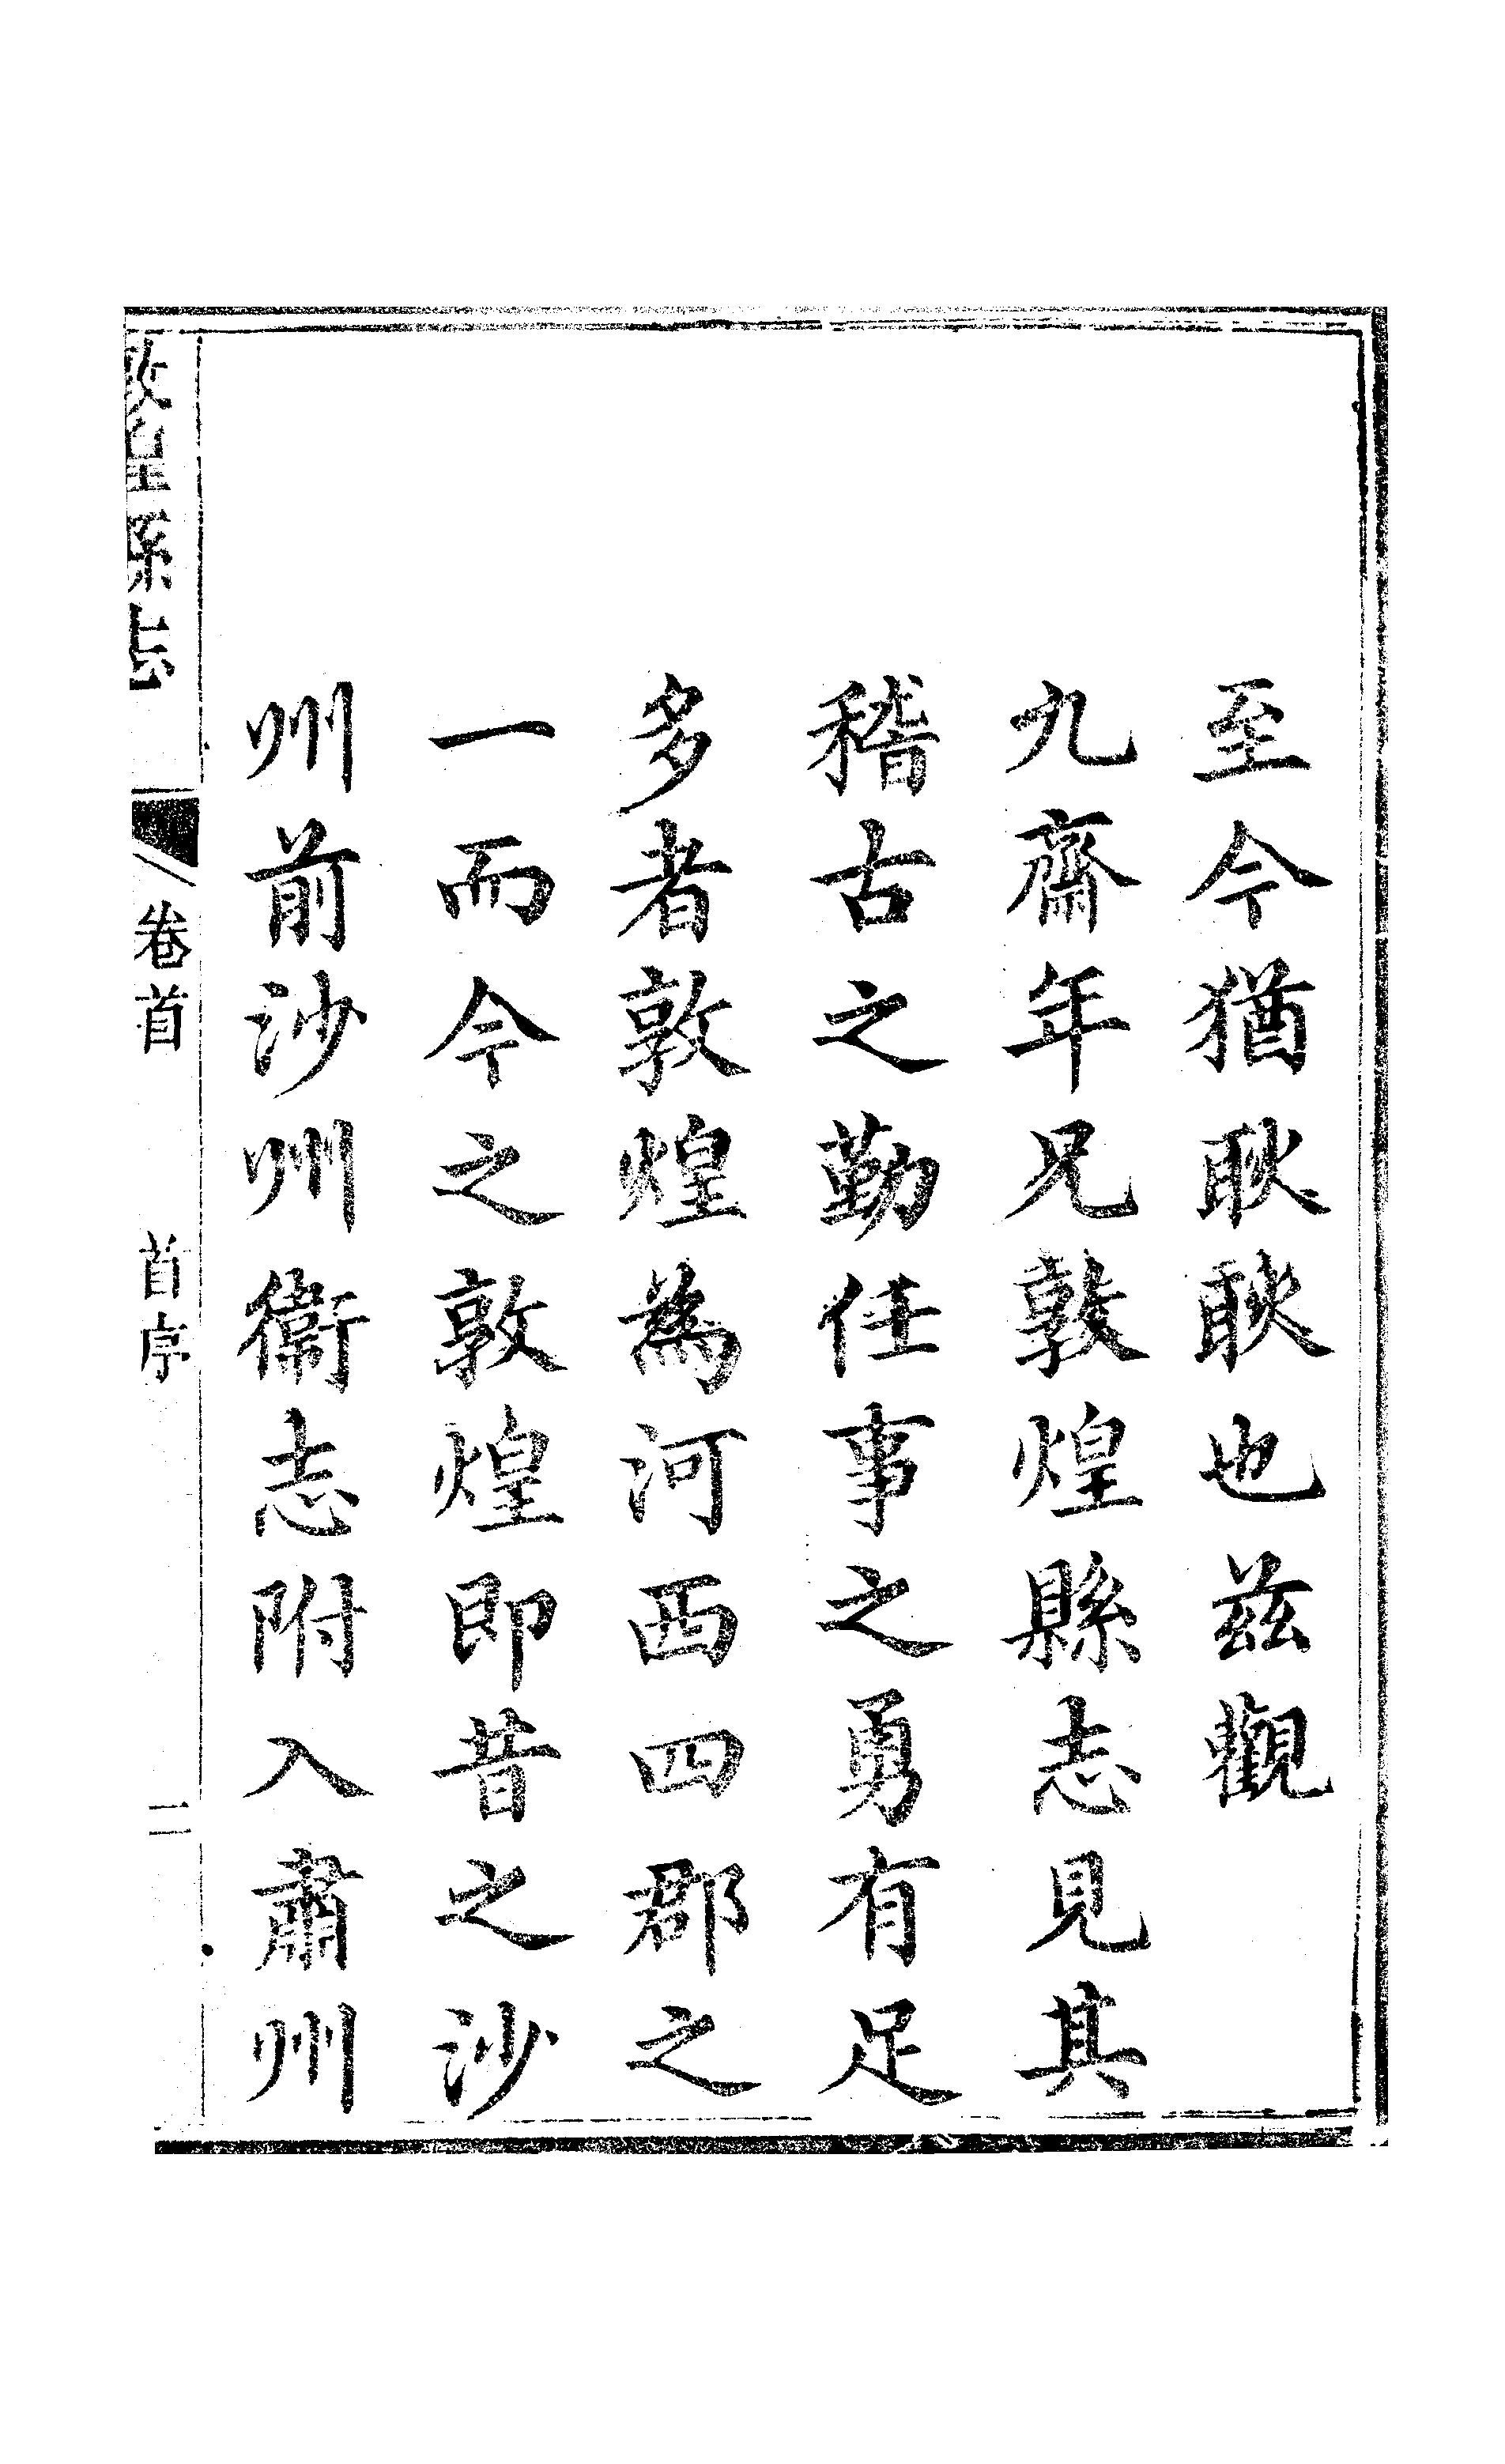 至今猶耿耿也茲觀
九齋年兄敦煌縣志見其
稽古之勤任事之勇有足
多者敦煌為河西四郡之
一而今之敦煌即昔之沙
州前沙州衛志附入肅州
敦煌縣志 卷首 首序 二